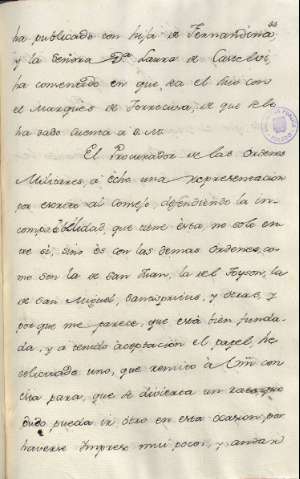 ha publicado con hija de Fernandina
y la Señora D.ª Laura de Castelvi,
ha comenzado en que sea el hijo con
el Marqués de Torrecusa, de que debo
ha dado cuenta a S. M.
El Procurador de las Ordenes
Militares, á echo una representacion
por escrito al Consejo, defendiendo la in-
compatibilidad, que tiene esta, no solo en-
tre si, sino es con las demas Ordenes, co-
mo son la de San Juan, la del Toyson, la
de San Miguel, Sancspiritus, y otras, y
porque me parece, que está bien funda-
da, y a tenido aceptacion el papel, he
solicitado uno, que remito á Vm con
esta para, que se divierta un rato, que
pueda ir otro en esta ocasion, por
haverse Impreso mui pocos, y andan